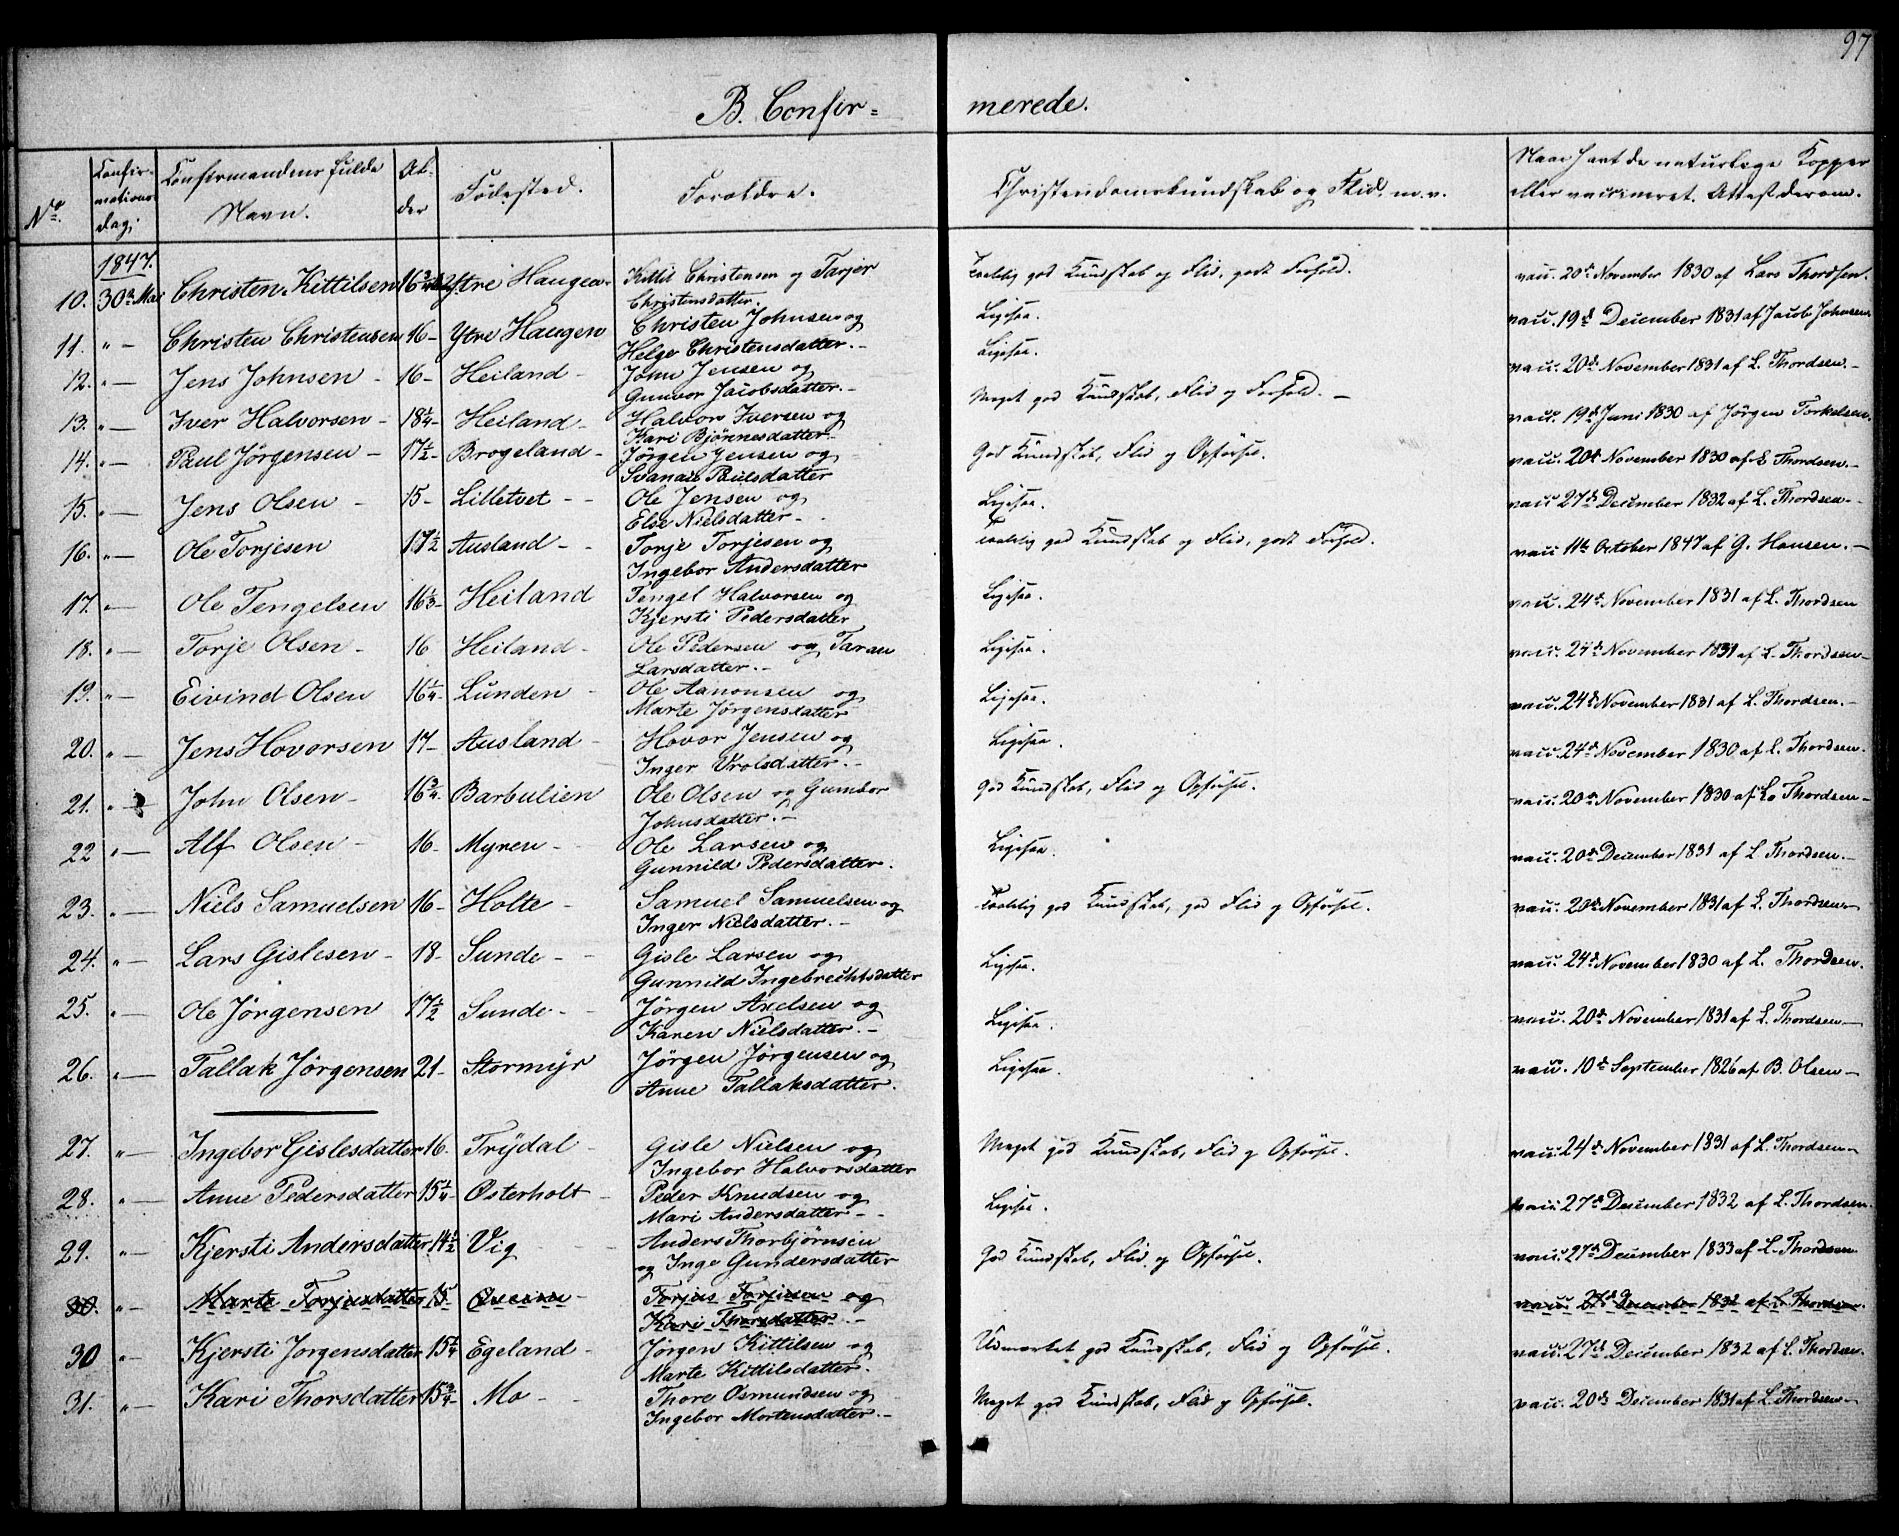 97
B. Confir=merede.
No. | Confirmations dag; | Confirmandens fulde Navn. | Alder | Fødested. | Forældre. | Christendomskundskab og Flid, m.v. | Naar havt de naturlige Kopper eller vaccineret. Attest derom.
1847.
10. 30te Mai Christen Kittilsen 16 3/4 Ytre Haugen Kittil Christensen og Tarjer Christensdatter. Taalelig god Kundskab og Flid, godt Forhold. vacc. 20de November 1830 af Lars Thordsen.
11. " — Christen Christensen 16 - Ytre Haugen Christen Johnsen og Helge Christensdatter. - Ligesaa. vacc. 19de December 1831 af Jacob Johnsen.
12. " — Jens Johnsen - 16 - Heiland - John Jensen og Gunvor Jacobsdatter. - Ligesaa. vacc. 20de November 1831 af L. Thordsen. -
13. " — Iver Halvorsen - 18 1/4 - Heiland - Halvor Iversen og Kari Bjönnesdatter. - Meget god Kundskab, Flid og Forhold. - vacc. 19de Juni 1830 af Jörgen Torkelsen.
14. " — Paul Jörgensen - 17 1/2 - Brogeland - Jörgen Jensen og Svanau Paulsdatter God Kundskab, Flid og Opførsel. vacc. 20de November 1830 af L Thordsen. -
15. " — Jens Olsen - 15 - Lilletvet - - Ole Jensen og Else Nielsdatter - - Ligesaa. vacc. 27de December 1832 af L. Thordsen -
16. " — Ole Torjesen 17 1/2 Ausland - - Torje Torjesen og Ingebor Andersdatter Taalelig god Kundskab og Flid, godt Forhold. vacc 11te October 1847 af G. Hansen. -
17. " — Ole Tengelsen 16 1/3 - Heiland Tengel Halvorsen og Kjersti Pedersdatter Ligesaa. vacc. 24de November 1831 af L. Thordsen
18. " — Torje Olsen - 16 Heiland - Ole Pedersen og Taran Larsdatter. - Ligesaa. vacc. 24de November 1831 af L. Thordsen -
19. " — Eivind Olsen 16 1/4 - Lunden - Ole Aanonsen og Marte Jörgensdatter Ligesaa. vacc. 24de November 1831 af L. Thordsen. -
20. " — Jens Hovorsen 17 - Ausland - Hovor Jensen og Inger Vrolsdatter. - Ligesaa. vacc. 24de November 1830 af L. Thordsen.
21. " — John Olsen - 16 3/4 Barbulien Ole Olsen og Gumbor Johnsdatter. - God Kundskab, Flid og Opførsel. vacc. 20de November 1830 af L. Thordsen -
22 " — Alf Olsen - 16 - Myren - - Ole Larsen og Gunnild Pedersdatter. Ligesaa. vacc. 20de December 1831 af L Thordsen. -
23. " — Niels Samuelsen 16 - Holte - Samuel Samuelsen og Inger Nielsdatter. - Taalelig god Kundskab, god Flid og Opførsel. vacc. 20de November 1831 af L. Thordsen. -
24. " — Lars Gislesen - 18 - Sunde - - Gisle Larsen og Gunnild Ingebrechtsdatter Ligesaa. vacc. 24de November 1830 af L. Thordsen.
25. " — Ole Jörgensen 17 1/2 Sunde - - Jörgen Axelsen og Karen Nielsdatter. - Ligesaa. vacc. 20de November 1831 af L. Thordsen -
26. " — Tallak Jörgensen 21 - Stormyr Jörgen Jörgensen og Anne Tallaksdatter. Ligesaa. vacc. 10de September 1826 af B. Olsen -
27. " — Ingebor Gislesdatter 16. Trydal - Gisle Nielsen og Ingebor Halvorsdatter Meget god Kundskab, Flid og Opførsel. vacc. 24de November 1831 af L. Thordsen -
28. " — Anne Pedersdatter 15 1/4 - Osterholt - Peder Knudsen og Mari Andersdatter - - Ligesaa. vacc 27de December 1832 af L. Thordsen.
29. " — Kjersti Andersdatter 14 1/2 Vig - - Anders Thorbjörnsen og Inge Gundersdatter God Kundskab, Flid og Opførsel. vacc. 27de December 1833 af L. Thordsen
30. " — Marte Torjusdatter 15 Torjus Torjusen og Kari Thorsdatter. - vacc. 27de December 1832 af L. Thordsen.
30 " — Kjersti Jorgensdatter 15 1/4 Egeland - Jörgen Kittilsen og Marte Kittilsdatter. - Udmærket god Kundskab, Flid og Opførsel. vacc. 27de December 1832 af L. Thordsen.
31. " — Kari Thorsdatter 15 3/4 - Mo - Thore Osmundsen og Ingebor Mortensdatter. - Meget god Kundskab, Flid og Opførsel. vacc. 20de December 1831 af L. Thordsen -